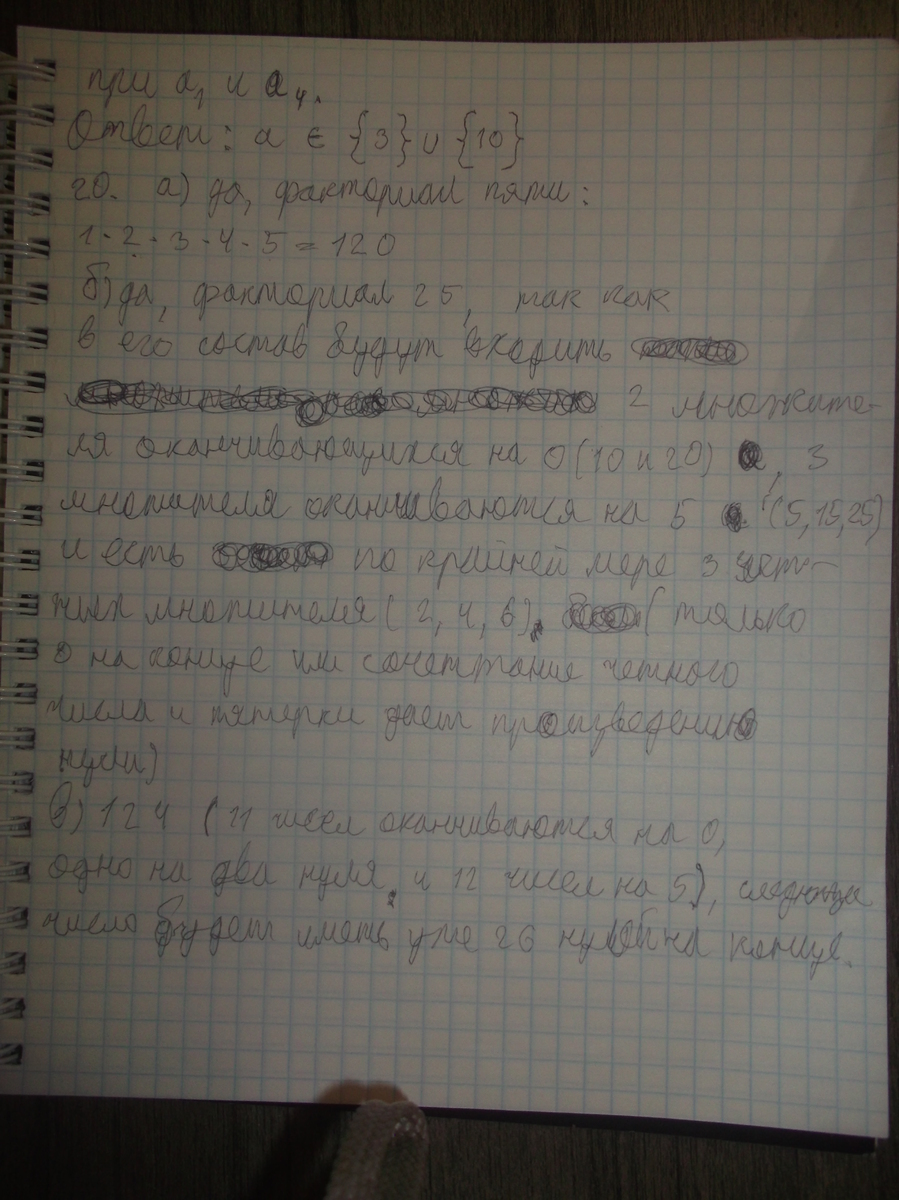 при a₁ и a₄.
Ответ: a ∈ {3} ∪ {10}
20. а) да, факториал пяти:
1·2·3·4·5 = 120
б) да, факториал 25, так как
в его состав будут входить
2 множите-
ля оканчивающихся на 0 (10 и 20), 3
множителя оканчиваются на 5 (5, 15, 25)
и есть по крайней мере 3 чет-
ных множителя (2, 4, 6). (только
0 на конце или сочетание четного
числа и пятерки дает произведению
нули)
в) 124 (11 чисел оканчиваются на 0,
одно на два нуля и 12 чисел на 5), следующее
число будет иметь уже 26 нулей на конце.